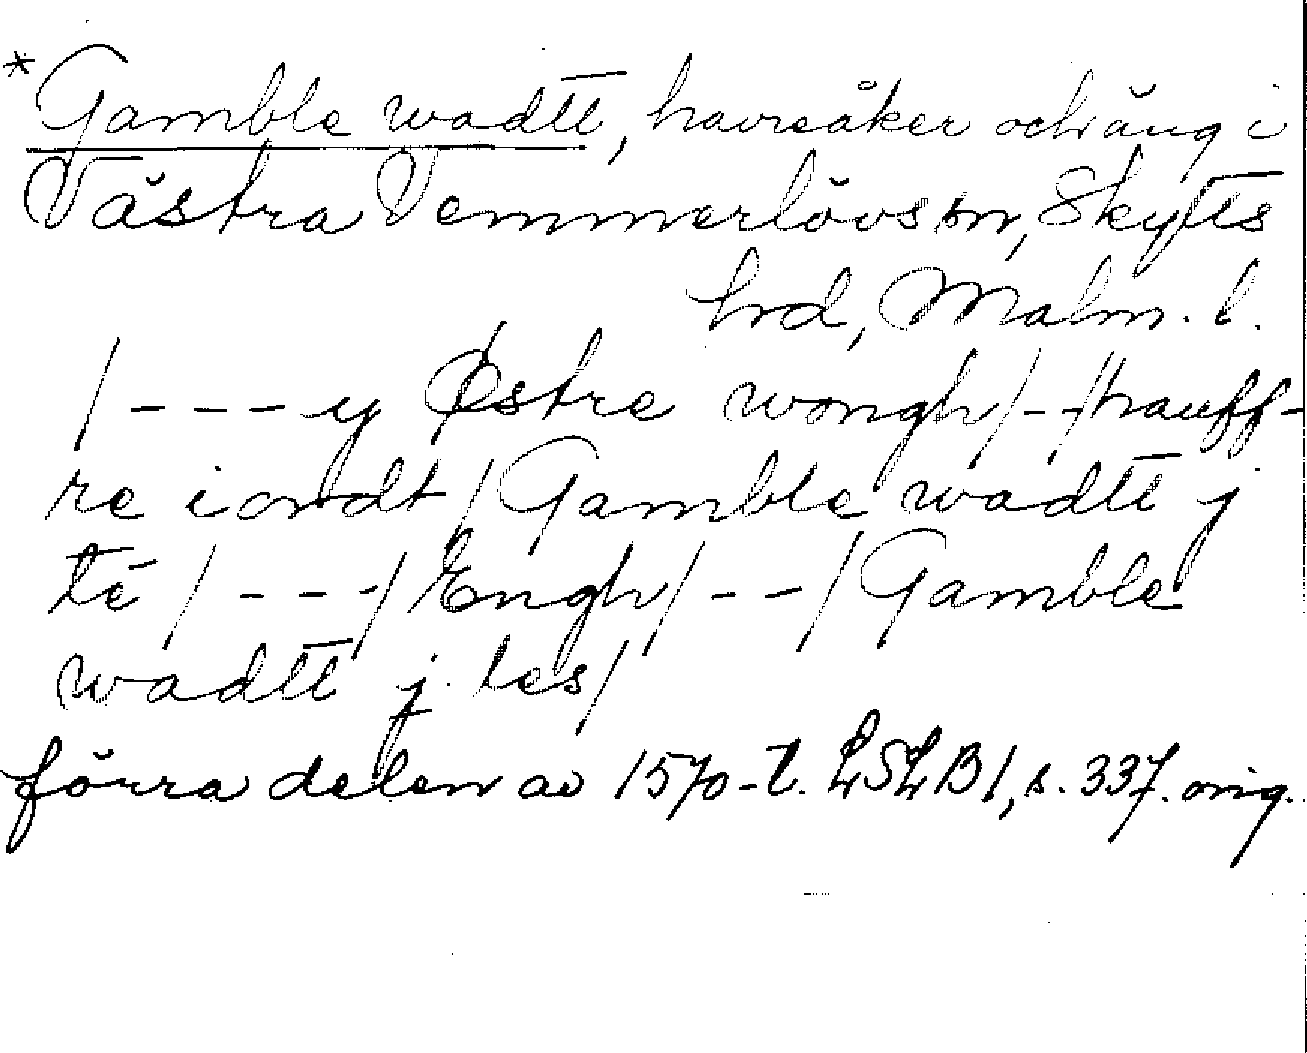 *Gamble wadtt, havreåker och äng i
Västra Vemmerlövs sn, Skytts
hrd, Malm. l.
/---y Østre wongh/--/hauff-
re iordt/Gamble wadtt j
tē/---/Engh/--/Gamble
wadtt j. les/
förra delen av 1570-t. LSLB1, s. 337. orig.